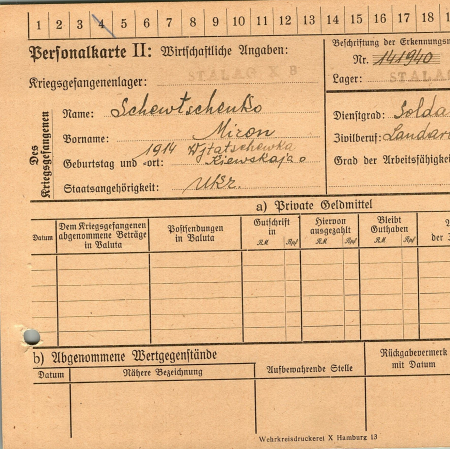 1 2 3 4 5 6 7 8 9 10 11 12 13 14 15 16 17 18
Personalkarte II: Wirtschaftliche Angaben:
Beschriftung der Erkennungsm
Nr. 141940
Kriegsgefangenenlager: STALAG X B
Lager: STALAG
Des Kriegsgefangenen
Name: Schewtschenko
Vorname: Miron
Geburtstag und -ort: 1914
Kiewskaja o
Staatsangehörigkeit: Ukr.
Dienstgrad: Solda
Zivilberuf: Landar
Grad der Arbeitsfähigkeit
a) Private Geldmittel
Datum
Dem Kriegsgefangenen abgenommene Beträge in Valuta
Postsendungen in Valuta
Gutschrift in
RM Rpf
Hiervon ausgezahlt
RM Rpf
Bleibt Guthaben
RM Rpf
der
b) Abgenommene Wertgegenstände
Datum
Nähere Bezeichnung
Aufbewahrende Stelle
Rückgabevermerk mit Datum
Wehrkreisdruckerei X Hamburg 13